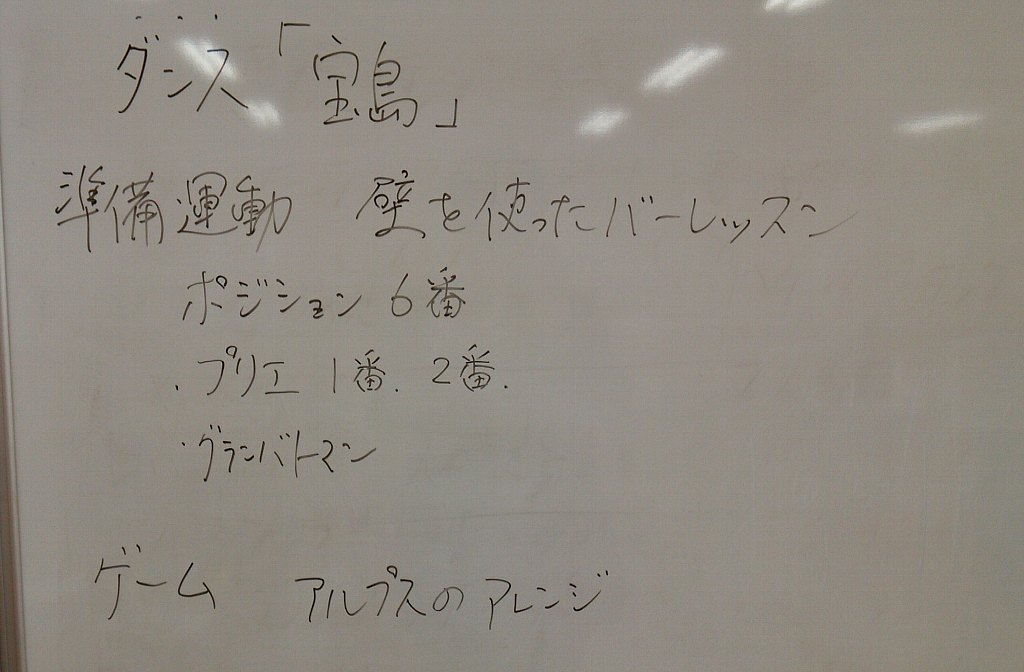 ダンス「宝島」
準備運動 壁を使ったバーレッスン
ポジション 6番
・プリエ 1番. 2番.
・グランバトマン
ゲーム アルプスのアレンジ